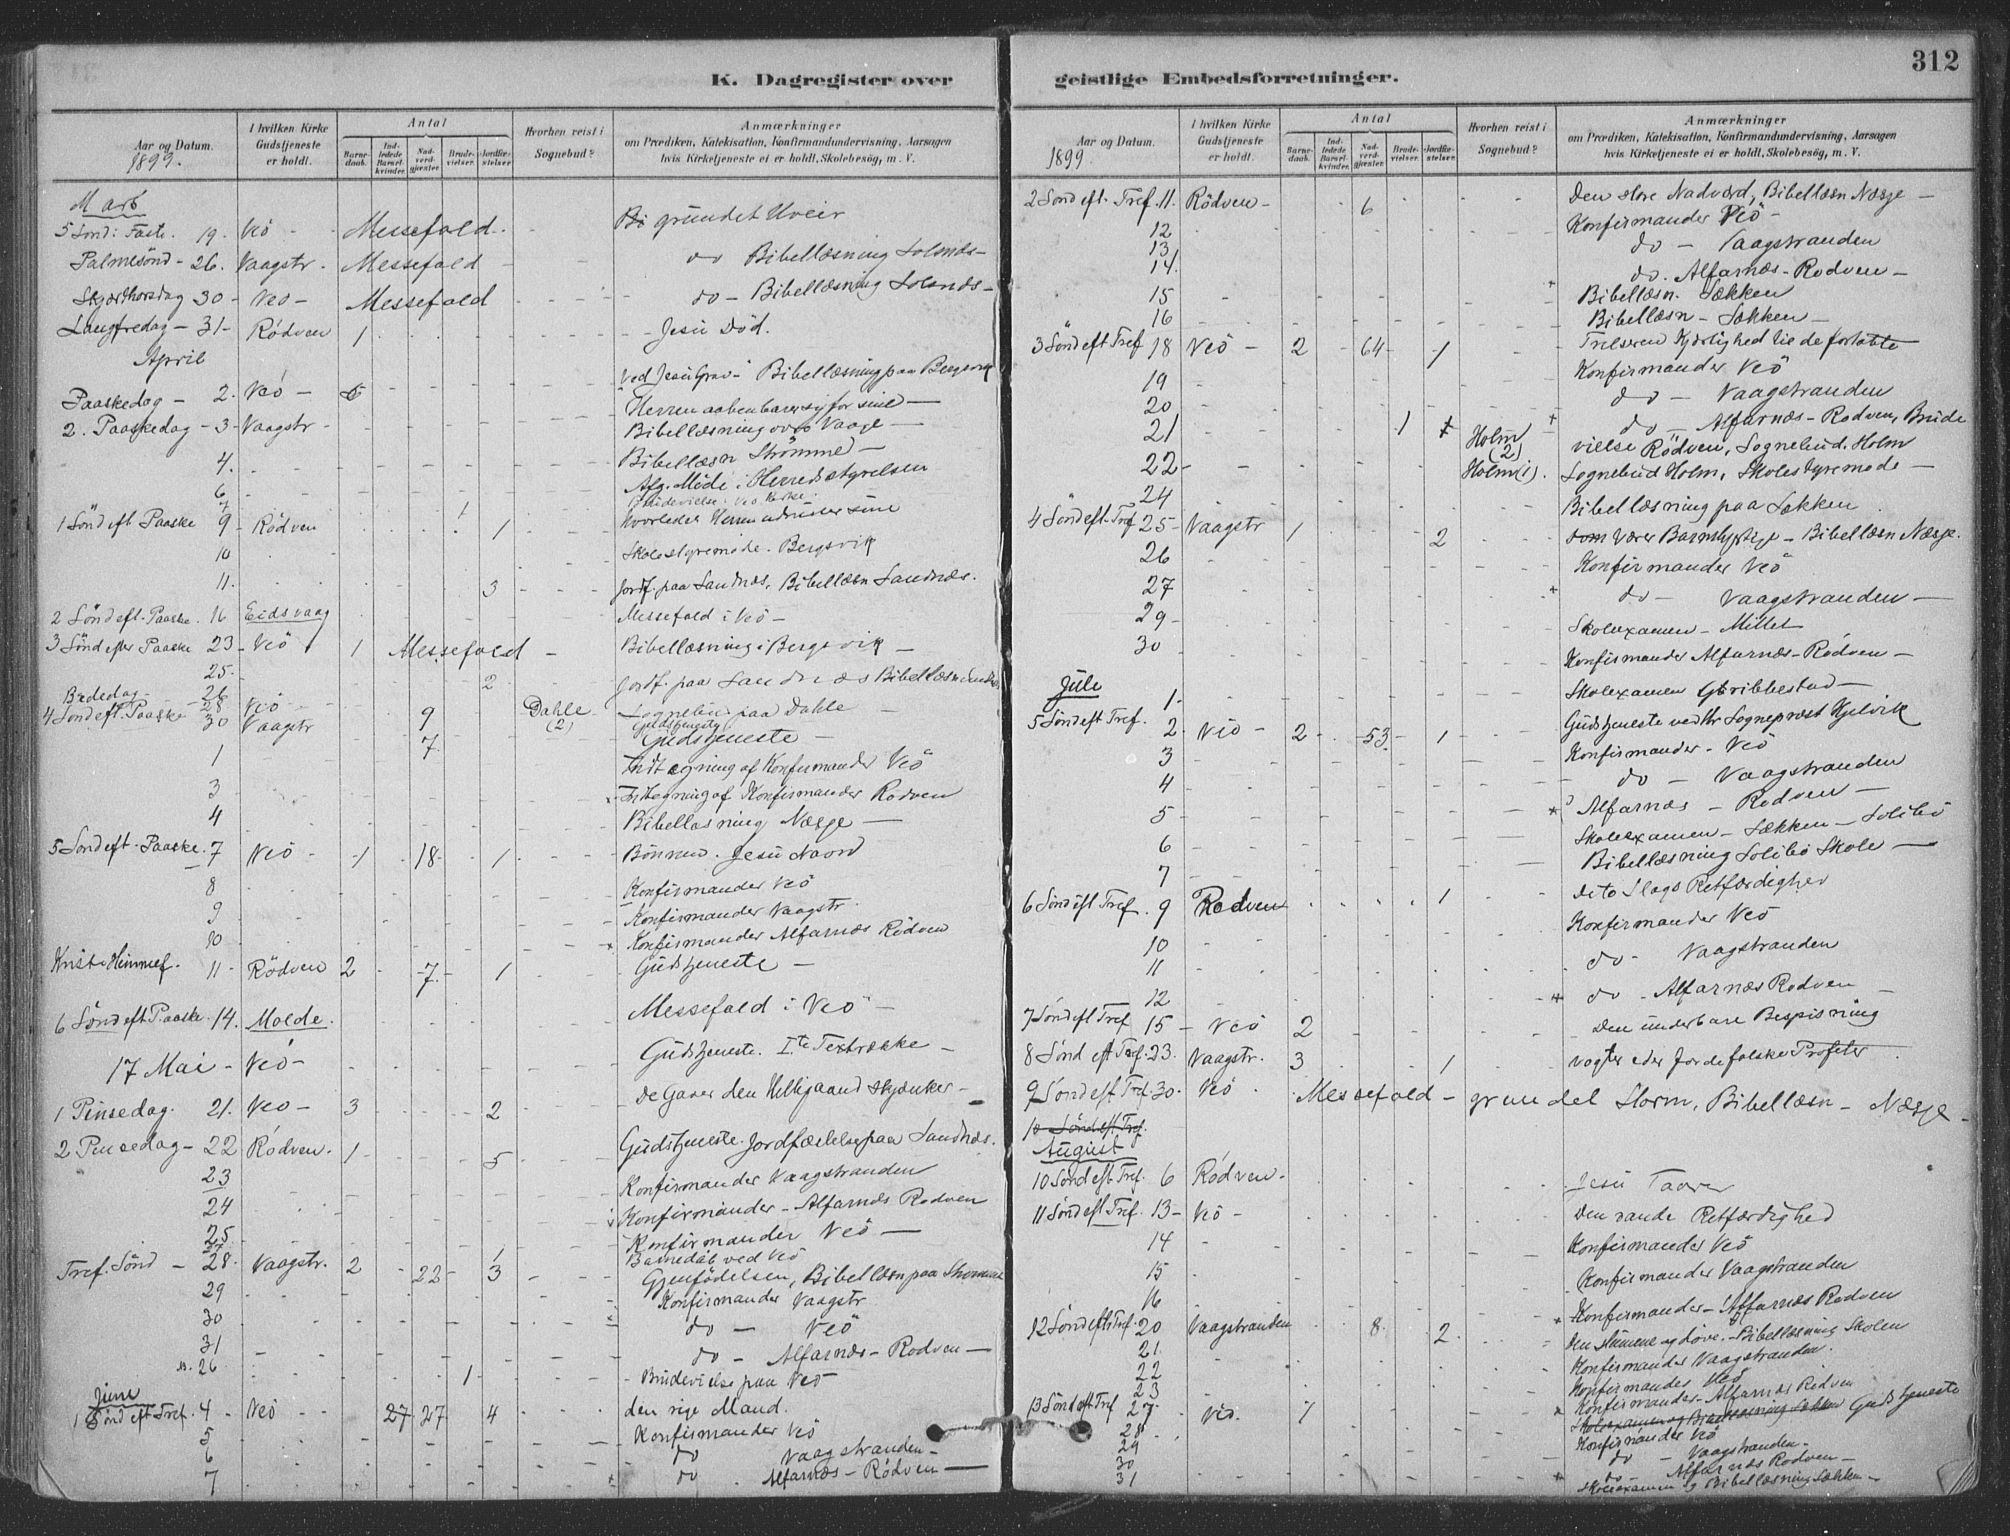 K. Dagregister over
Aar og Datum.
1899.
I hvilken Kirke Gudstjeneste er holdt.
Antal
Barnedaab.
Indledede Barselkvinder.
Nadverdgjester.
Brudevielser.
Jordfæstelser.
Hvorhen reist i Sognebud?
Anmærkninger
om Prædiken, Katekisation, Konfirmandundervisning, Aarsagen
hvis Kirketjeneste ei er holdt, Skolebesøg, m. V.
5 Sönd: Faste. 19. Veö Messefald. grundet Uveir
Palmesönd - 26. Vaagstr. Messefald do Bibellæsning Solsnæs
Skjærthorsdag 30 - Veö - Messefald do - Bibellæsning Solsnæs
Langfredag - 31 - Rödven 1 Jesu Död.
April
Paaskedag - 2. Veö - Ved Jesu Grav - Bibellæsning paa Bergsvik
2. Paaskedag - 3 - Vaagstr -
Bibellæsning Vaage
4. Bibellæsn Strömme
6 Afg. Möde i Herredsstyrelsen
7 1 Brudevielse Veö Kirke.
1 Sönd eft Paaske 9 - Rödven 1
10 Skolestyremöde. Bergsvik
11. 3 Jordf. paa Sandnæs, Bibellæsn Sandnæs.
2 Sönd eft. Paaske. 16 Eidsvaag Messefald i Veö -
3 Sönd efter Paaske 23 - Veö 1 Messefald - Bibellæsning i Bergsvik
25. 2 Jordf. paa Sandnæs
Bededag 26
28 Veö 9 Dahle (2) Sognebud paa Dahle
4 Sönd eft. Paaske 30 Vaagstr 7 Gudstjeneste
1 Indtegning af Konfirmander Veö
3 Indtegning af Konfirmander Rödven
4 Bibellæsning Næsje
5 Sönd eft. Paaske. 7 Veö - 1 18 1 Bönnen. Jesu Navn
8 Konfirmander Veö
9 Konfirmander Vaagstr.
10 Konfirmander Alfarnæs Rödven
Kristi Himmelf. 11 - Rödven 2 7 1 Gudstjeneste
6 Sönd eft Paaske. 14. Molde. Messefald i Veö
17 Mai - Veö - Gudstjeneste. Ite Textrække
1 Pinsedag. 21. Veö - 3 2 De Gaver den Helligaand skjænker
2 Pinsedag - 22 Rödven. 1 5 Gudstjeneste. Jordfæstelse paa Sandnæs.
23 Konfirmander Vaagstranden
24 Konfirmander - Alfarnæs Rödven
25 Konfirmander Veö
27 Barnedaab ved Veö
Tref. Sönd - 28. Vaagstr. 2 22 3 Gjenfödelsen, Bibellæsn paa
29 Konfirmander Vaagstr
30 do - Veö
31 do - Alfarnæs - Rödven
26 1 Brudevielse paa Veö
Juni
1 Sönd eft Tref. 4 - Veö 27 27 4 den rige Mand.
5 Konfirmander Veö
6 do Vaagstranden
7 do Alfarnæs - Rödven
geistlige Embedsforretninger.
312
Aar og Datum.
1899.
I hvilken Kirke Gudstjeneste er holdt.
Antal
Barnedaab.
Indledede Barselkvinder.
Nadverdgjester.
Brudevielser.
Jordfæstelser.
Hvorhen reist i Sognebud?
Anmærkninger
om Prædiken, Katekisation, Konfirmandundervisning, Aarsagen
hvis Kirketjeneste ei er holdt, Skolebesøg, m. V.
2 Sönd eft. Tref. 11. Rödven - 6 Den store Nadverd, Bibellæsn Næsje
12 Konfirmander Veö
13 do - Vaagstranden
14. do. Alfarnæs - Rödven
15 Bibellæsn. Sækken
16 Bibellæsn - Sækken
3 Sönd eft Tref 18 Veö - 2 64 1 Kjærlighed til de fortabte
19 Konfirmander Veö
20 do - Vaagstranden
21 1 Holm (2) do - Alfarnæs - Rödven, Brude
vielse Rödven, Sognebud. Holm
22 Holm (1). Sognebud Holm, Skolestyremöde
24 Bibellæsning paa Sækken
4 Sönd eft. Tref 25 - Vaagstr 1 2 Bibellæsn Næsje.
26 Konfirmander Veö
27 do - Vaagstranden
29 Skolexamen - Mittet
30 Konfirmander Alfarnæs - Rödven
Juli
1. Skolexamen Gribbestad
5 Sönd eft Tref. 2. Veö - 2 53 1 Gudstjeneste ved Hr Sogneprest Kjelvik
3 Konfirmander - Veö
4 do - Vaagstranden
5 Alfarnæs - Rödven
6 Skolexamen - Sækken - Solibö
7 Bibellæsning Solibö Skole
6 Sönd eft Tref. 9 Rødven 1 De to Slags Retfærdighed
10 Konfirmander Veö
11 do - Vaagstranden
12 do - Alfarnæs Rödven
7 Sönd eft Tref 15 - Veö 2 Den underbare Bespisning
8 Sönd eft Tref. 23. Vaagstr. 3 1 Vogter eder for de falske Profeter
9 Sönd eft Tref. 30. Veö Messefald - grundet Storm, Bibellæsn - Næsje
10 Sönd eft Tref.
August
10 Sönd eft Tref. 6 Rödven. Jesu Taarer
11 Sönd eft Tref. 13 - Veö - Den sande Retfærdighed
14 Konfirmander Veö
15 Konfirmander Vaagstranden
16 Konfirmander - Alfarnæs Rödven
12 Sönd eft Tref 20 Vaagstranden 8. 2 Den stumme og döve. Bibellæsning Skolen
21. Konfirmander Vaagstranden.
22 Konfirmander Veö
23 Konfirmander - Alfarnæs Rödven
13 Sönd eft Tref 27. Veö. 1 Skolexamen og Bibellæsning Sækken Gudstjeneste
28 Konfirmander Veö
29 do - Vaagstranden -
30 do - Alfarnæs Rödven
31 Skolexamen og Bibellæsning Sækken